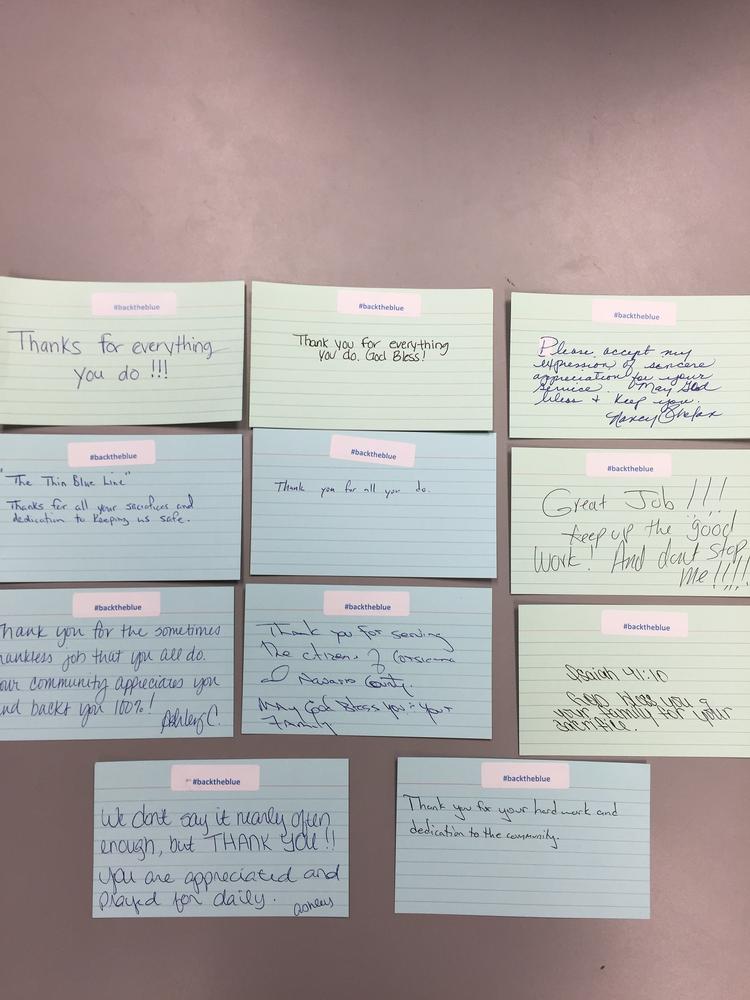 #backtheblue
Thanks for everything
you do !!!
#backtheblue
Thank you for everything
you do. God Bless!
#backtheblue
Please accept my
expression of sencere
appreciation for your
service. May God
bless & keep you.
Nancy
#backtheblue
"The Thin Blue Line"
Thanks for all your sacrifices and
dedication to keeping us safe.
#backtheblue
Thank you for all you do.
#backtheblue
Great Job !!!
keep up the good
work! And don't stop
me !!!!!
#backtheblue
Thank you for the sometimes
thankless job that you all do.
our community appreciates you
and backs you 100%!
Ashley C.
#backtheblue
Thank you for serving
the citizens of Corsicana
Navarro County.
May God Bless you & your
Family
#backtheblue
Isaiah 41:10
God bless you &
your family for your
sacrifice.
#backtheblue
We dont say it nearly often
enough, but THANK YOU!!
you are appreciated and
prayed for daily.
ashley
#backtheblue
Thank you for your hard work and
dedication to the community.